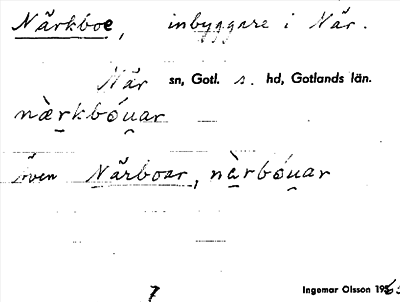 Närkboe, inbyggare i När.
När sn, Gotl. s. hd, Gotlands län.
nä̀rkbóu̯ar
även Närboar, nä̀rbóu̯ar
7 Ingemar Olsson 1965